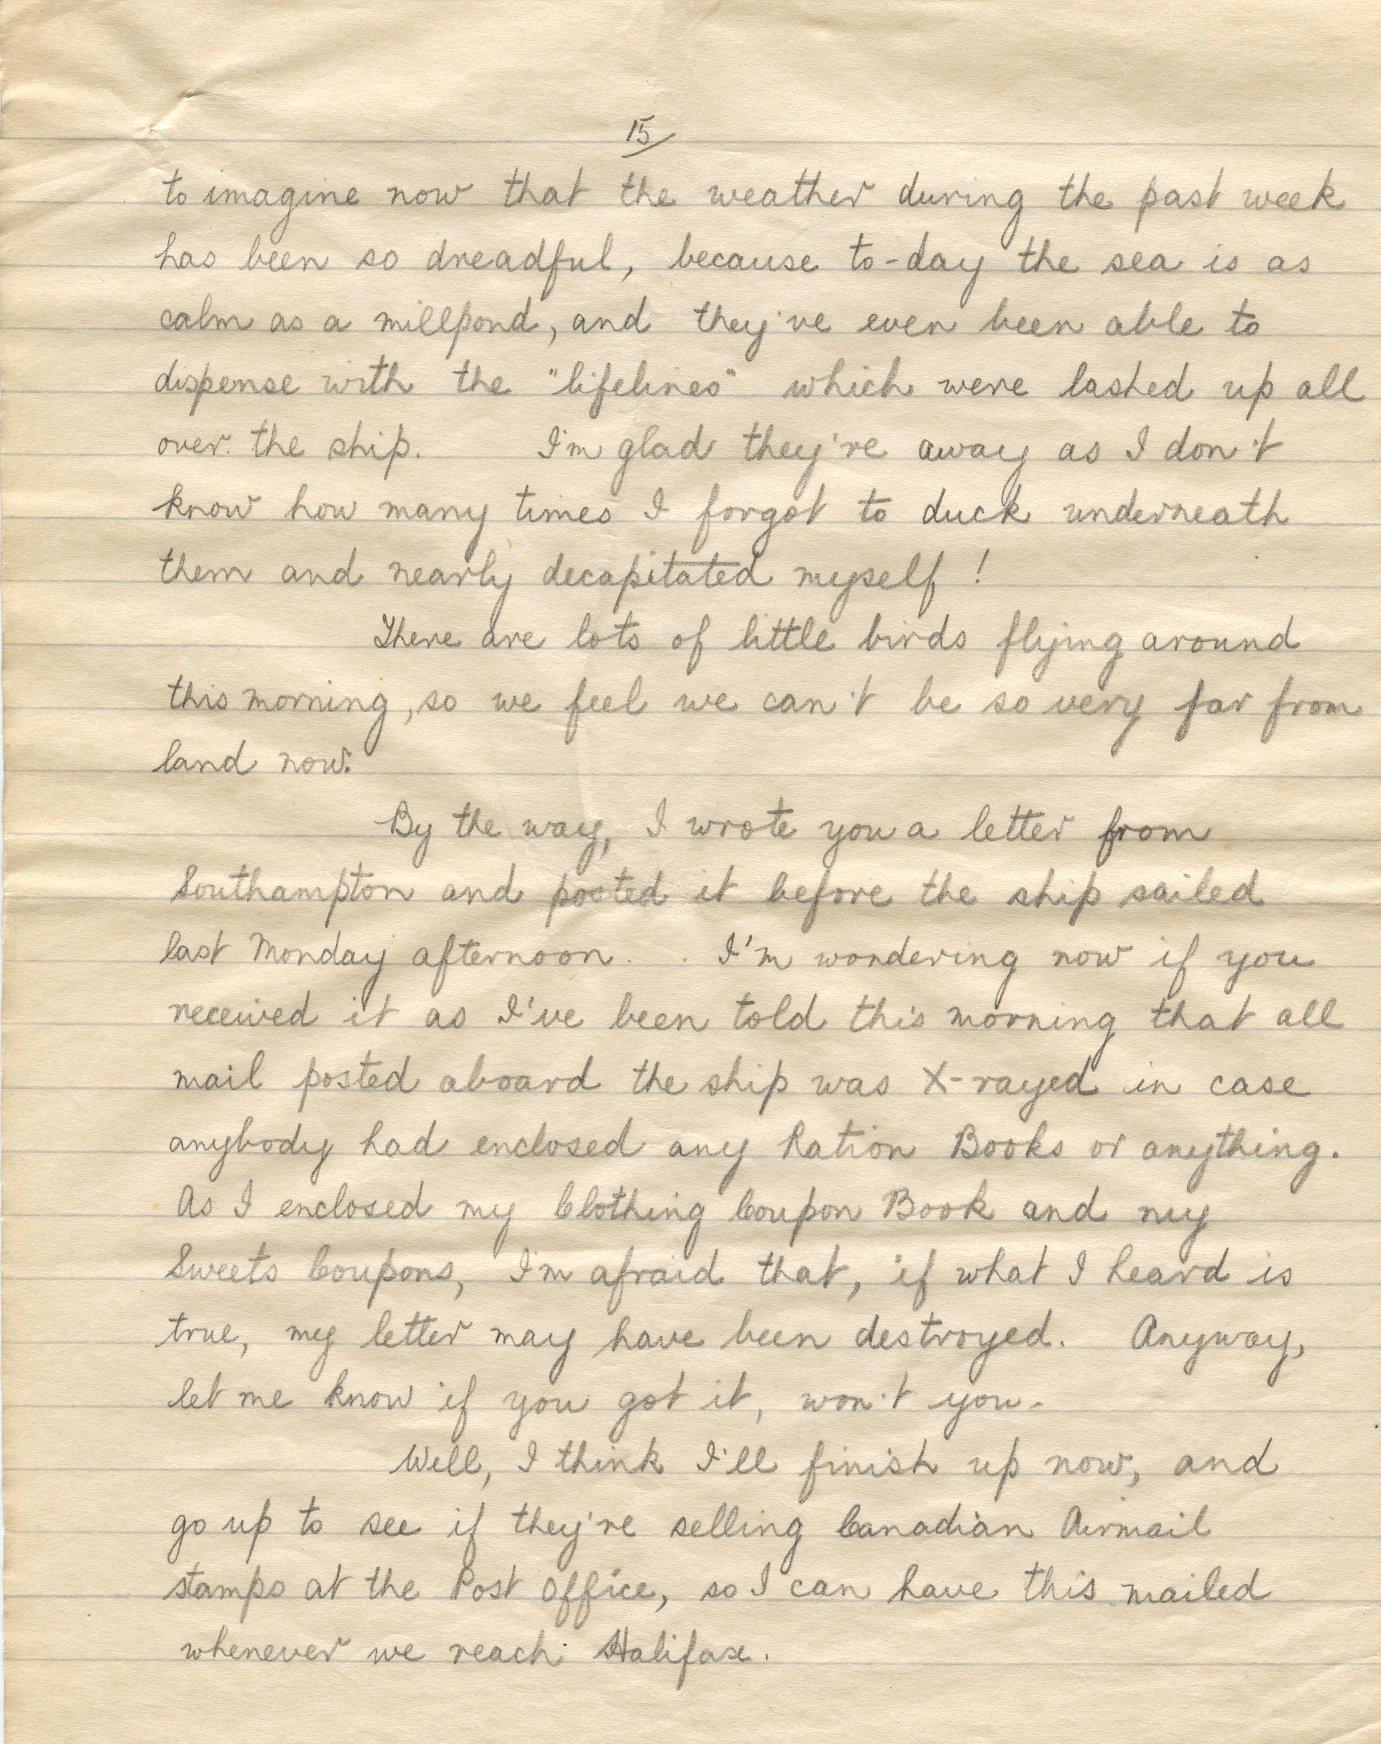 15
to imagine now that the weather during the past week
has been so dreadful, because to-day the sea is as
calm as a millpond, and they've even been able to
dispense with the "lifelines" which were lashed up all
over the ship. I'm glad they're away as I don't
know how many times I forgot to duck underneath
them and nearly decapitated myself!
There are lots of little birds flying around
this morning, so we feel we can't be so very far from
land now.
By the way, I wrote you a letter from
Southampton and posted it before the ship sailed
last Monday afternoon. I'm wondering now if you
received it as I've been told this morning that all
mail posted aboard the ship was X-rayed in case
anybody had enclosed any Ration Books or anything.
As I enclosed my Clothing Coupon Book and my
Sweets Coupons, I'm afraid that, if what I heard is
true, my letter may have been destroyed. Anyway,
let me know if you got it, won't you.
Well, I think I'll finish up now, and
go up to see if they're selling Canadian Airmail
stamps at the Post Office, so I can have this mailed
whenever we reach Halifax.